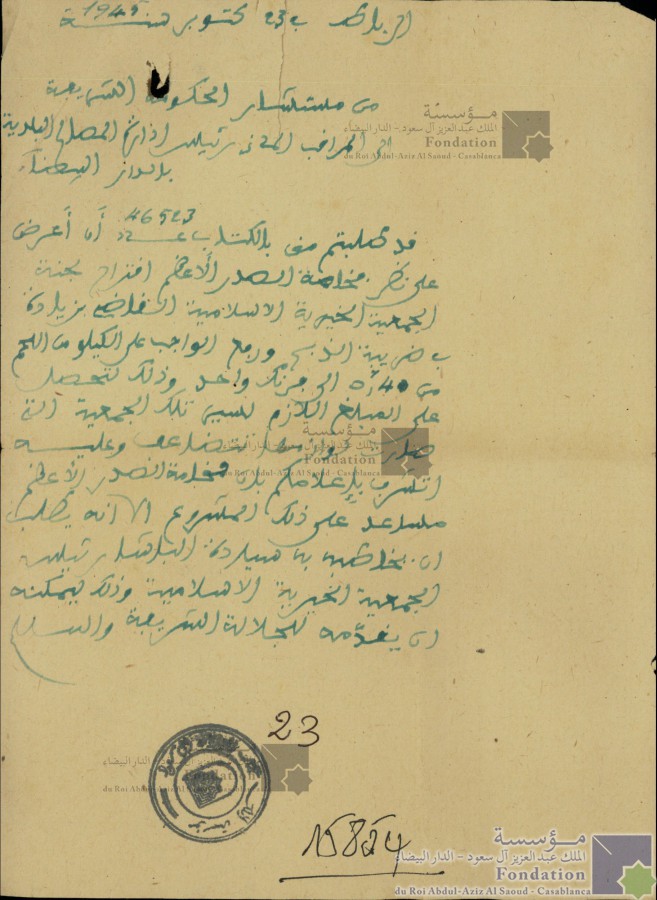 الرباط ب 23 كتوبر سنة 1945
من مستشار الحكومة الشريفة
الى المراقب المدني رئيس ادارة المصالح البلدية
بالدار البيضاء
قد طلبتم مني بالكتاب عدد 46523 أن أعرض
على نظر فخامة الصدر الأعظم اقتراح لجنة
الجمعية الخيرية الاسلامية القاضي بزيادة
في ضريبة الذبح ورفع الواجب على الكيلو من اللحم
من 0,40 الى فرنك واحد وذلك لتحصل
على المبلغ اللازم لسير تلك الجمعية التي
صارت تتضاعف وعليه
اتشرف بإعلامكم بان فخامة الصدر الأعظم
مساعد على ذلك المشروع الا انه يطلب
ان يخاطب به سيادة الباشا رئيس
الجمعية الخيرية الاسلامية وذلك ليمكنه
ان يقدمه للجلالة الشريفة والسلام
23
15824
مؤسسة
الملك عبد العزيز آل سعود - الدار البيضاء
Fondation
du Roi Abdul-Aziz Al Saoud - Casablanca